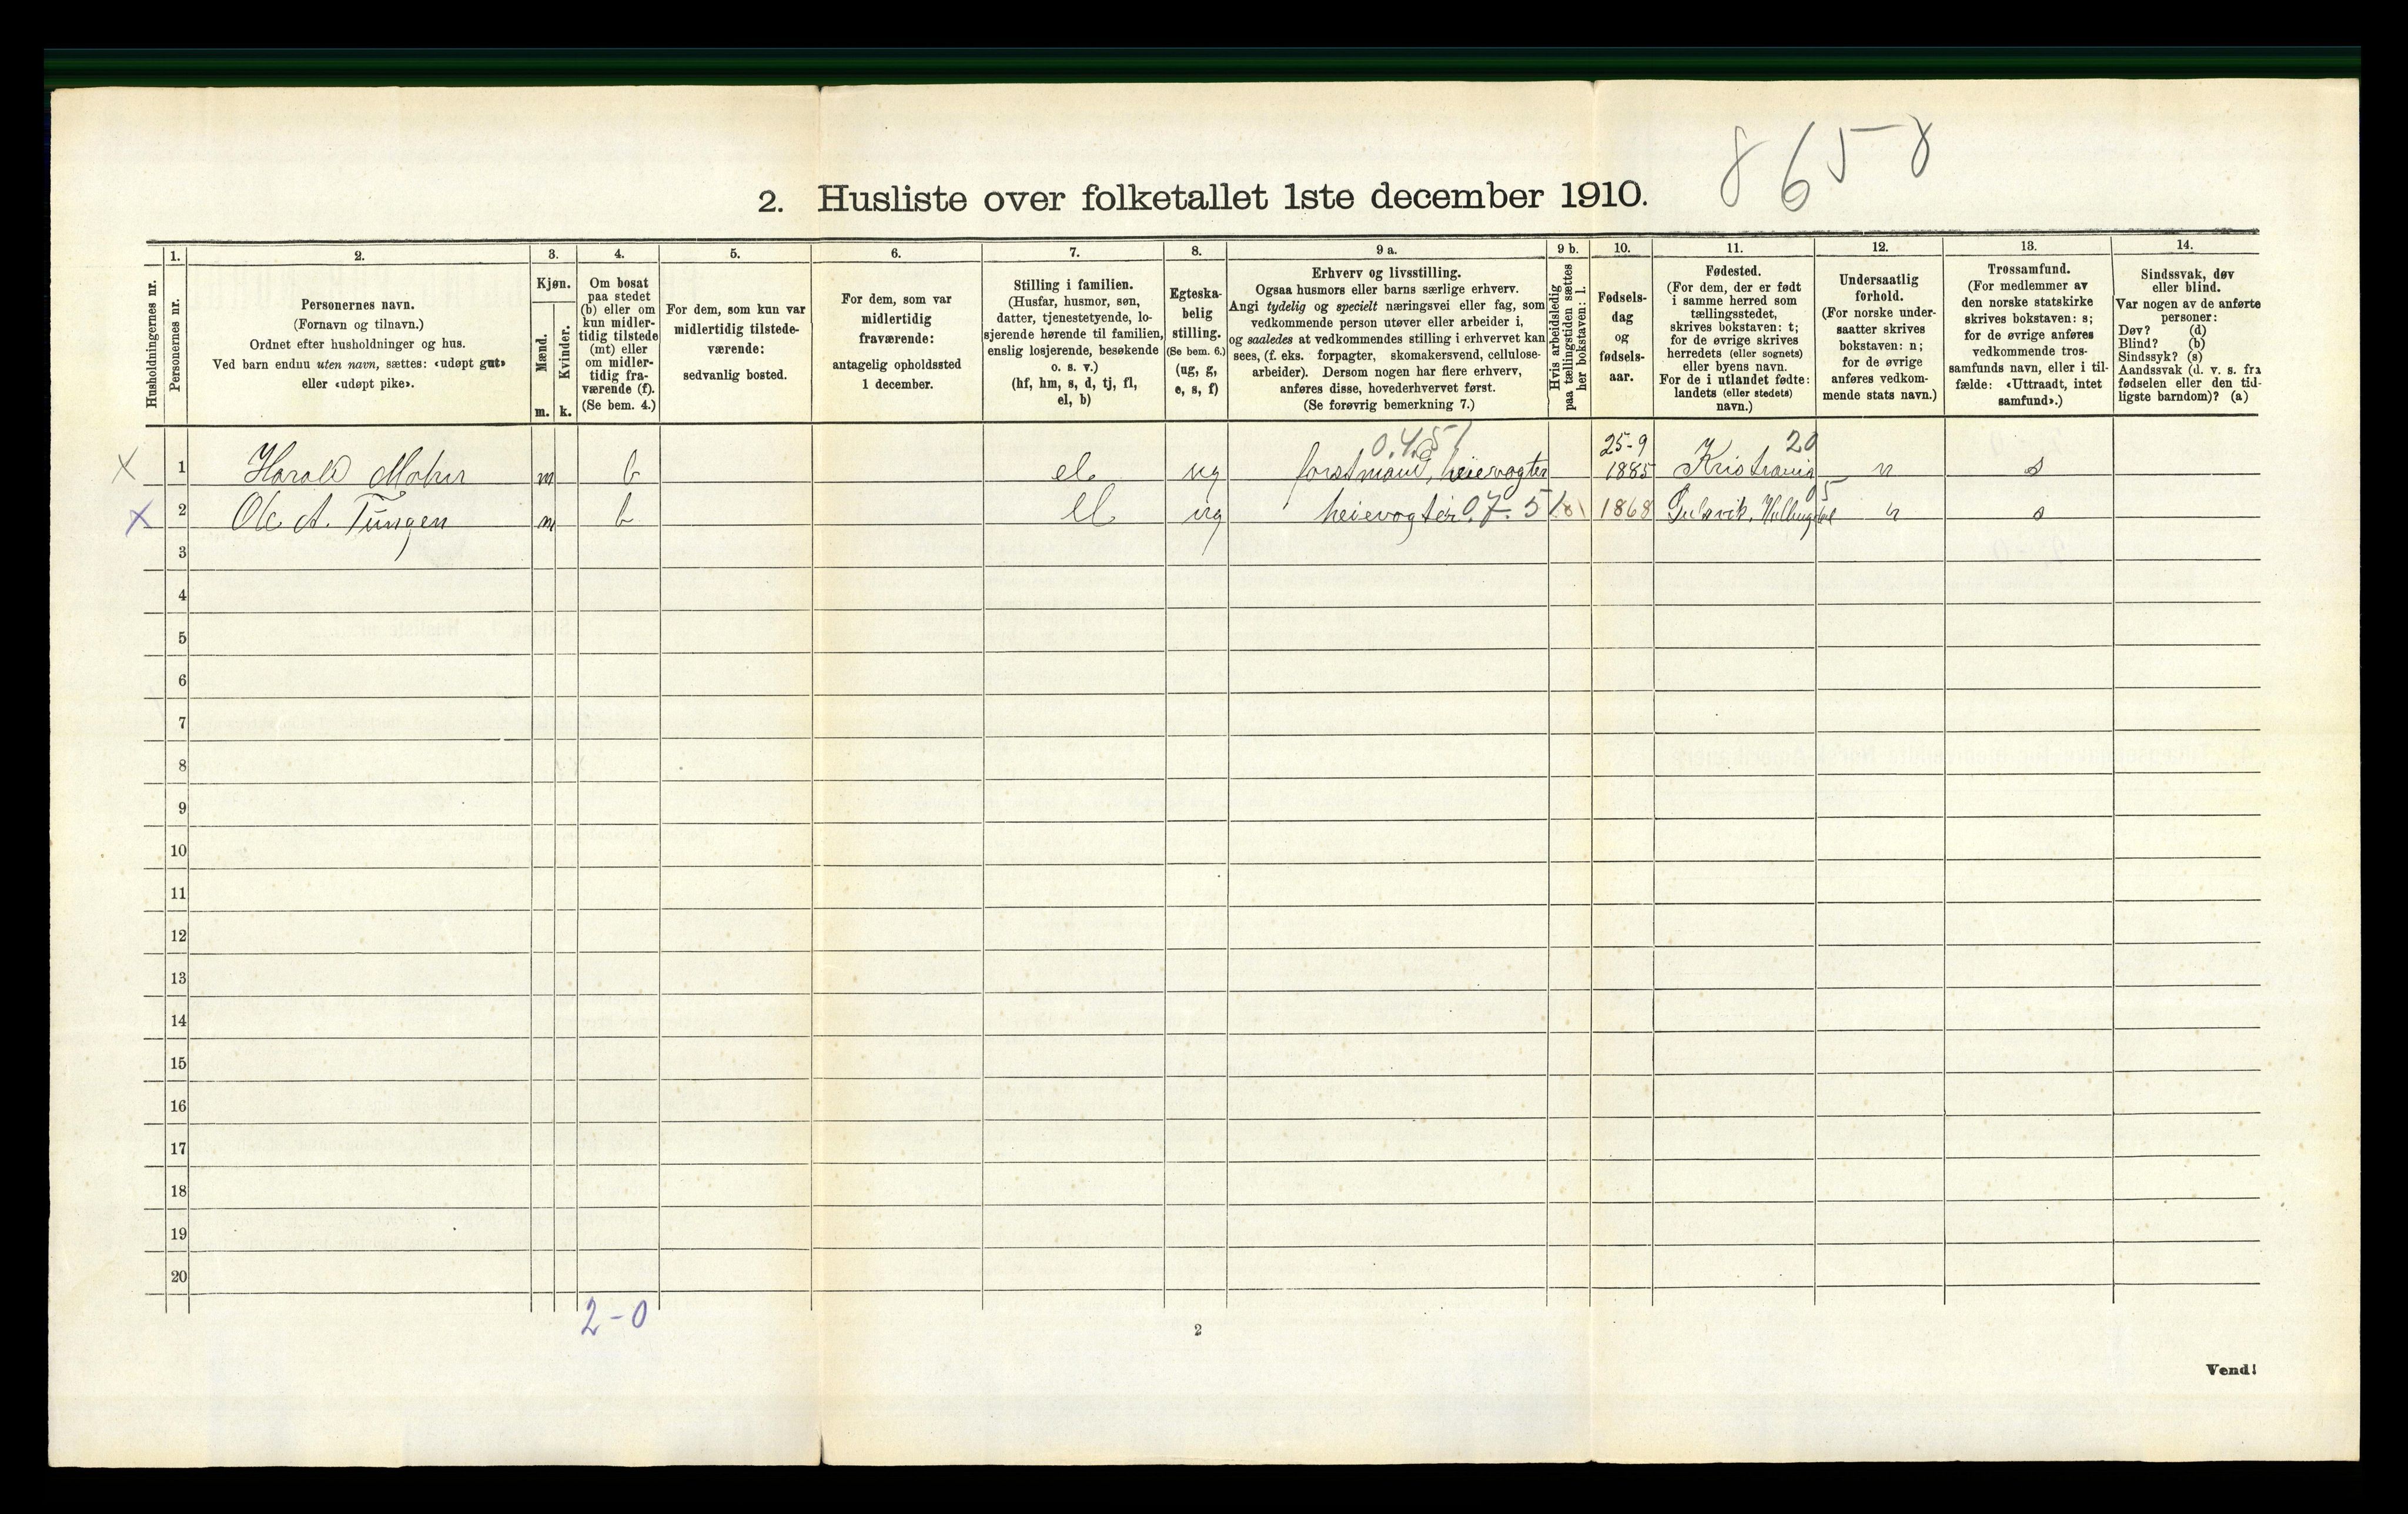 8 6 5 8
2. Husliste over folketallet 1ste december 1910.
1. 2. 3. 4. 5. 6. 7. 8. 9 a. 9 b. 10. 11. 12. 13. 14.
Husholdningernes nr.
Personernes nr.
Personernes navn.
(Fornavn og tilnavn.)
Ordnet efter husholdninger og hus.
Ved barn endnu uten navn, sættes: «udøpt gut»
eller «udøpt pike».
Kjøn.
Mænd.
Kvinder.
m. k.
Om bosat
paa stedet
(b) eller om
kun midler-
tidig tilstede
(mt) eller
om midler-
tidig fra-
værende (f).
(Se bem. 4.)
For dem, som kun var
midlertidig tilstede-
værende:
sedvanlig bosted.
For dem, som var
midlertidig
fraværende:
antagelig opholdssted
1 december.
Stilling i familien.
(Husfar, husmor, søn,
datter, tjenestetyende, lo-
sjerende hørende til familien,
enslig losjerende, besøkende
o. s. v.)
(hf, hm, s, d, tj, fl,
el, b)
Egteska-
belig
stilling.
(Se bem. 6.)
(ug, g,
e, s, f)
Erhverv og livsstilling.
Ogsaa husmors eller barns særlige erhverv.
Angi tydelig og specielt næringsvei eller fag, som
vedkommende person utøver eller arbeider i,
og saaledes at vedkommendes stilling i erhvervet kan
sees, (f. eks. forpagter, skomakersvend, cellulose-
arbeider). Dersom nogen har flere erhverv,
anføres disse, hovederhvervet først.
(Se forøvrig bemerkning 7.)
Hvis arbeidsledig
paa tællingstiden sættes
her bokstaven: l.
Fødsels-
dag
og
fødsels-
aar.
Fødested.
(For dem, der er født
i samme herred som
tællingsstedet,
skrives bokstaven: t;
for de øvrige skrives
herredets (eller sognets)
eller byens navn.
For de i utlandet fødte:
landets (eller stedets)
navn.)
Undersaatlig
forhold.
(For norske under-
saatter skrives
bokstaven: n;
for de øvrige
anføres vedkom-
mende stats navn.)
Trossamfund.
(For medlemmer av
den norske statskirke
skrives bokstaven: s;
for de øvrige anføres
vedkommende tros-
samfunds navn, eller i til-
fælde: «Uttraadt, intet
samfund».)
Sindssvak, døv
eller blind.
Var nogen av de anførte
personer:
Døv? (d)
Blind? (b)
Sindssyk? (s)
Aandssvak (d. v. s. fra
fødselen eller den tid-
ligste barndom)? (a)
X 1 Harald m b el. ug forstmand, heievogter 25-9 1885 Kristiania 20 n s
X 2 Ole A. Tungen m b el ug heievogter 0.7.5 1868 Gulsvik, n s
3
4
5
6
7
8
9
10
11
12
13
14
15
16
17
18
19
20
2-0
2
Vend!